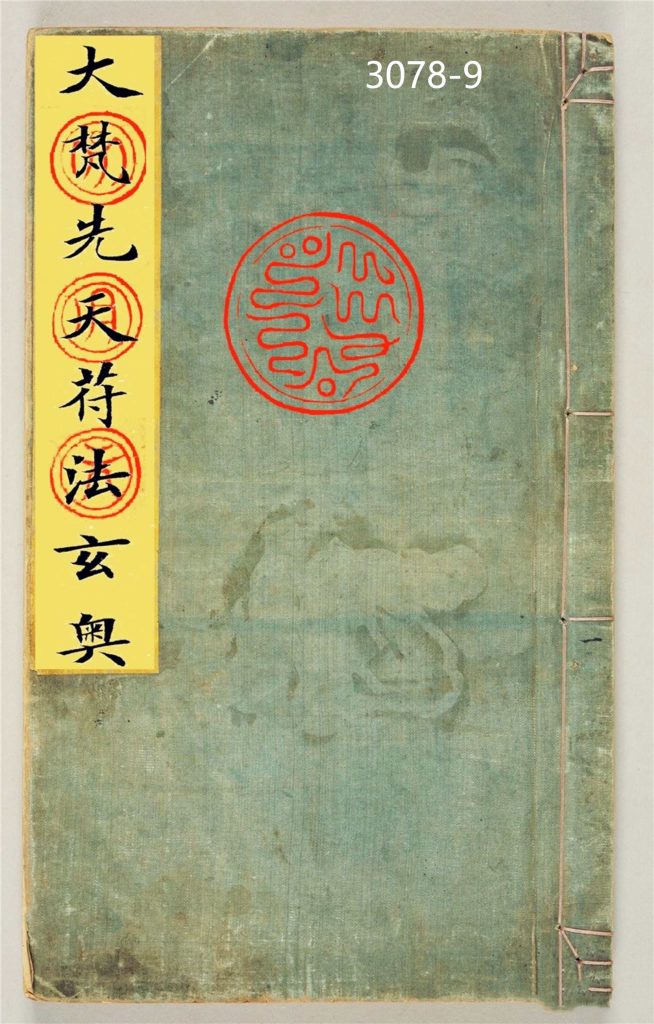 3078-9
大梵先天苻法玄奥
一